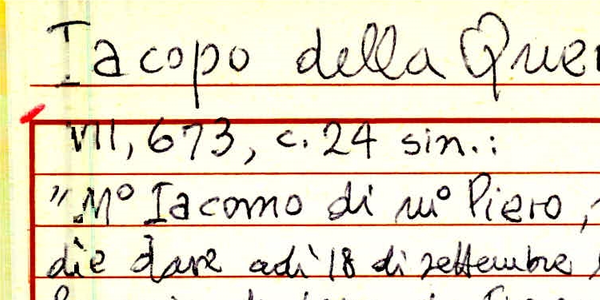 Iacopo della
VII, 673, c. 24 sin.:
"Mº Iacomo di mº Piero,
die dare adì 18 di settembre